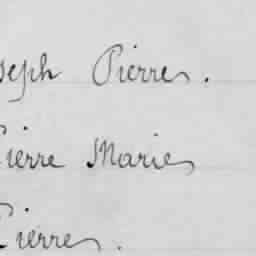 oseph Pierre.
Pierre Marie
Pierre.